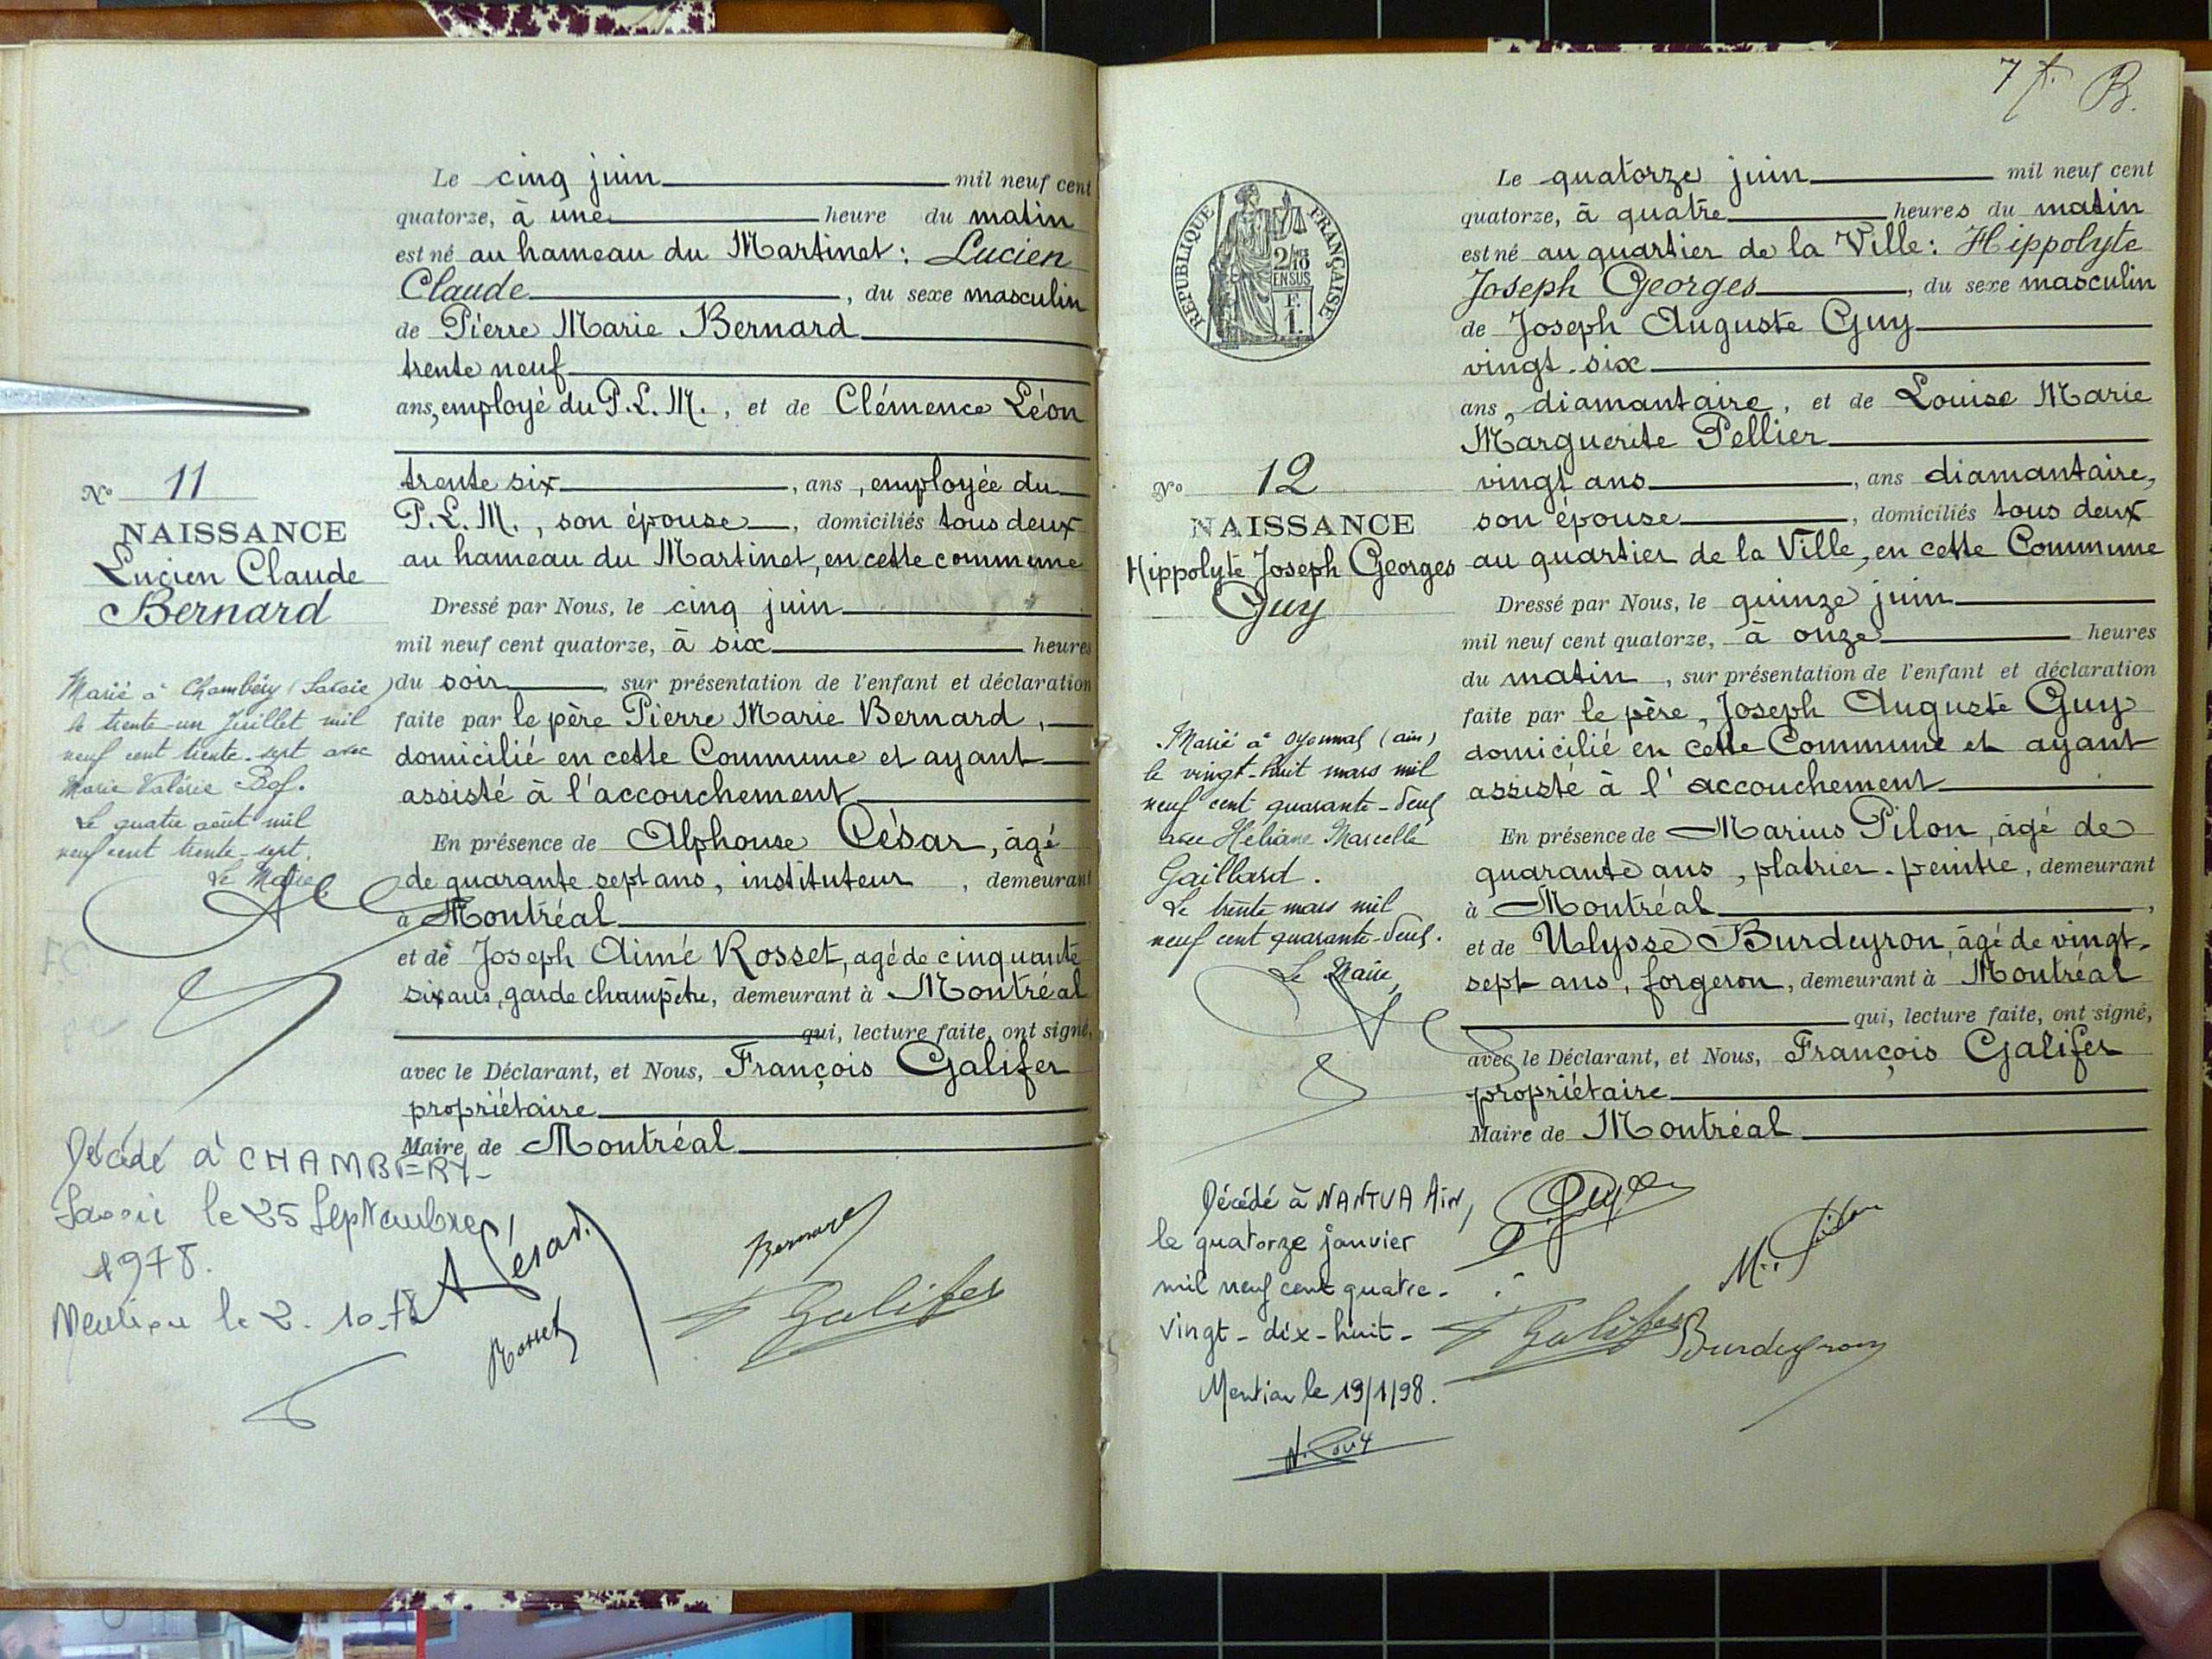 Le cinq juin mil neuf cent
quatorze, à une heure du matin
est né au hameau du Martinet : Lucien
Claude, du sexe masculin
de Pierre Marie Bernard
trente neuf
ans, employé du P.L.M., et de Clémence Léon
trente six, ans, employée du
P.L.M., son épouse, domiciliés tous deux
au hameau du Martinet, en cette commune
Dressé par Nous, le cinq juin
mil neuf cent quatorze, à six heures
du soir, sur présentation de l'enfant et déclaration
faite par le père Pierre Marie Bernard,
domicilié en cette Commune et ayant
assisté à l'accouchement
En présence de Alphonse César, âgé
de quarante sept ans, instituteur, demeurant
à Montréal
et de Joseph Aimé Rosset, agé de cinquante
six ans, garde champêtre, demeurant à Montréal
qui, lecture faite, ont signé,
avec le Déclarant, et Nous, François Galifer
propriétaire
Maire de Montréal
A César
Bernard
Rosset
Galifer
No 11
NAISSANCE
Lucien Claude
Bernard
Marié à Chambéry (Savoie)
le trente-un Juillet mil
neuf cent trente-sept avec
Marie Valérie
Le quatre août mil
neuf cent trente-sept.
Le Maire
Décédé à CHAMBERY-
Savoie le 25 Septembre
1978.
Mention le 2.10.78
7 f. B.
REPUBLIQUE FRANÇAISE
2/10
EN SUS
F.
1.
Le quatorze juin mil neuf cent
quatorze, à quatre heures du matin
est né au quartier de la Ville : Hippolyte
Joseph Georges, du sexe masculin
de Joseph Auguste Guy
vingt-six
ans, diamantaire, et de Louise Marie
Marguerite Pellier
vingt ans, ans diamantaire,
son épouse, domiciliés tous deux
au quartier de la Ville, en cette Commune
Dressé par Nous, le quinze juin
mil neuf cent quatorze, à onze heures
du matin, sur présentation de l'enfant et déclaration
faite par le père, Joseph Auguste Guy
domicilié en cette Commune et ayant
assisté à l'accouchement
En présence de Marius Pilon, âgé de
quarante ans, platrier-peintre, demeurant
à Montréal,
et de Ulysse Burdeyron, âgé de vingt-
sept ans, forgeron, demeurant à Montréal
qui, lecture faite, ont signé,
avec le Déclarant, et Nous, François Galifer
propriétaire
Maire de Montréal
Guy
M. Pilon
Galifer
Burdeyron
No 12
NAISSANCE
Hippolyte Joseph Georges
Guy
Marié à Oyonnax (ain)
le vingt-huit mars mil
neuf cent quarante-deux
avec Héliane Marcelle
Gaillard.
Le trente mars mil
neuf cent quarante-deux.
Le Maire,
Décédé à NANTUA Ain,
le quatorze janvier
mil neuf cent quatre-
vingt-dix-huit-
Mention le 19/1/98.